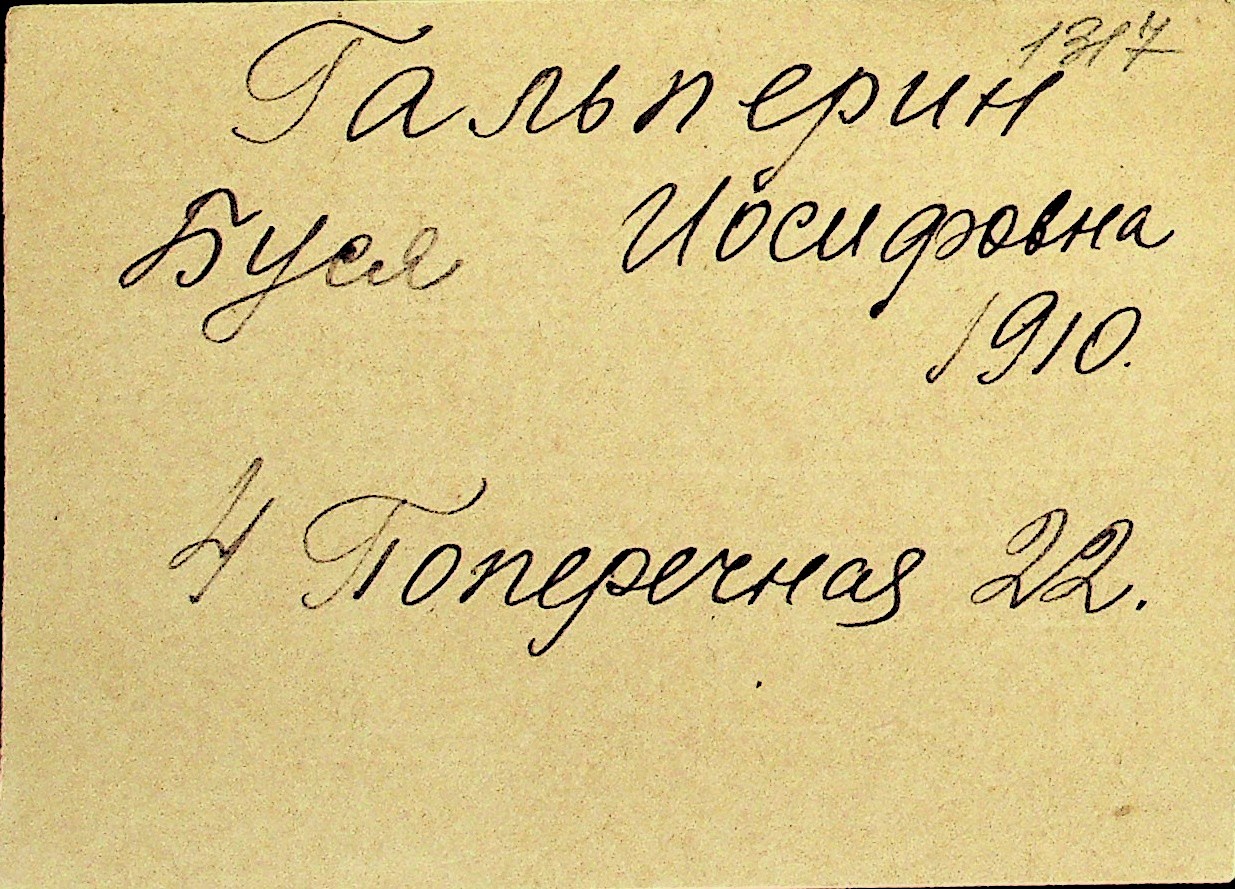 1317
Гальперин
Буся Иосифовна
1910.
4 Поперечная 22.